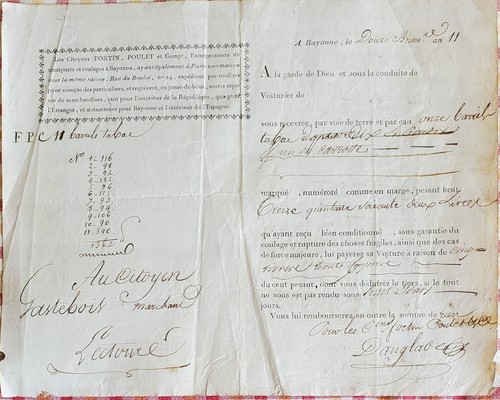 Les Citoyens FORTIN, POULET et Compᵉ, Entrepreneurs de
transports et roulages à Bayonne, ayant également à Paris une maison
sous la même raison, Rue du Bouloi, Nº. 24, expédient par rouliers
pour compte des particuliers, et reçoivent, en passe-debout, toutes espè-
ces de marchandises, tant pour l'intérieur de la République, que pour
l'Étranger, et notamment pour Bayonne et l'intérieur de l'Espagne.
F P C 11 barrils tabac
Nº 1 - 116
2 - 98
3 - 92
4 - 122
5 - 96
6 - 117
7 - 93
8 - 94
9 - 106
10 - 90
11 - 340
1362
Au Citoyen
Gastebois marchand
Lectoure
A Bayonne, le Douze Brum.re an 11
A la garde de Dieu et sous la conduite de
Voiturier de
vous recevrez, par voie de terre et par eau onze barrils
tabac
un en carrotte
marqué, numéroté comme en marge, pesant brut
Treize quintaux soixante deux Livres
qu'ayant reçu bien conditionné, sans garantie du
coulage et rupture des choses fragiles, ainsi que des cas
de force majeure, lui payerez sa Voiture à raison de cinq
du cent pesant, dont vous déduirez le tiers, si le tout
ne vous est pas rendu sous huit Jours
jours.
Vous lui rembourserez, en outre la somme de rien
Pour les Cens Fortin Poulet & Cie
Danglas